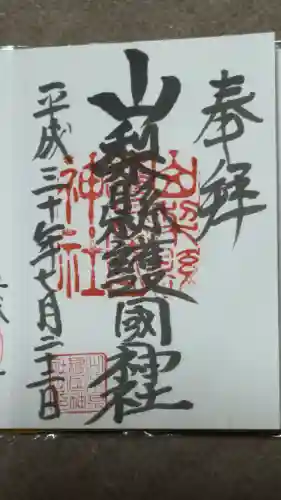 奉拝
山梨縣護國神社
平成三十年七月二十二日